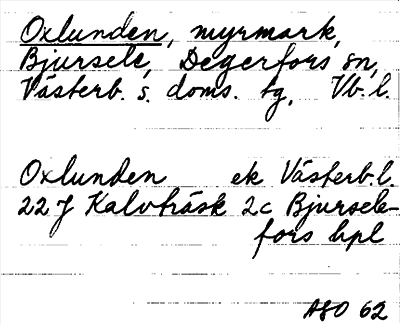 Oxlunden, myrmark,
Bjursele, Degerfors sn,
Västerb. s. doms. tg, Vb. l.
Oxlunden ek Västerb. l.
22 J Kalvträsk 2c Bjursele-
fors hpl
ASO 62